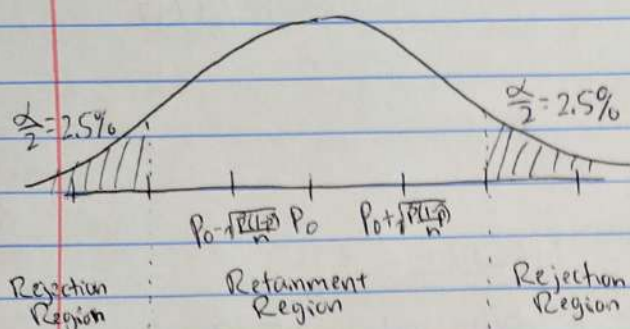 α/2 = 2.5%
α/2 = 2.5%
P₀-√(P(1-P)/n) P₀ P₀+√(P(1-P)/n)
Rejection Region
Retainment Region
Rejection Region